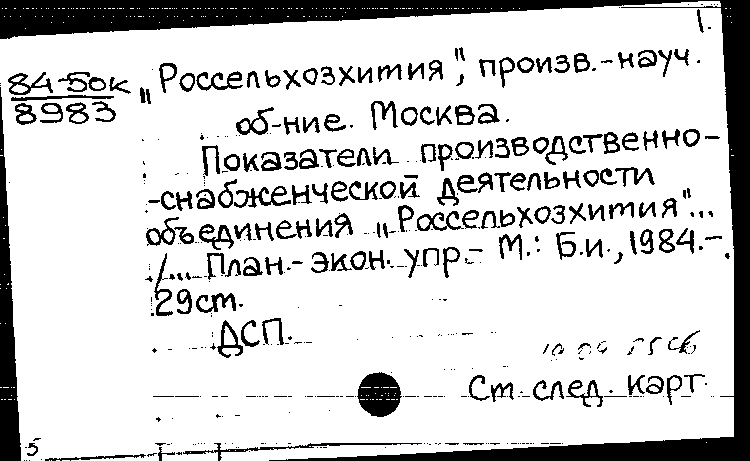 1.
84-5ок
8983
„Россельхозхимия", произв.-науч.
об-ние. Москва.
Показатели производственно-
-снабженческой деятельности
объединения „Россельхозхимия"...
/... План.- экон. упр.- М.: Б.и., 1984.-
29ст.
ДСП.
Ст. след. карт.
5